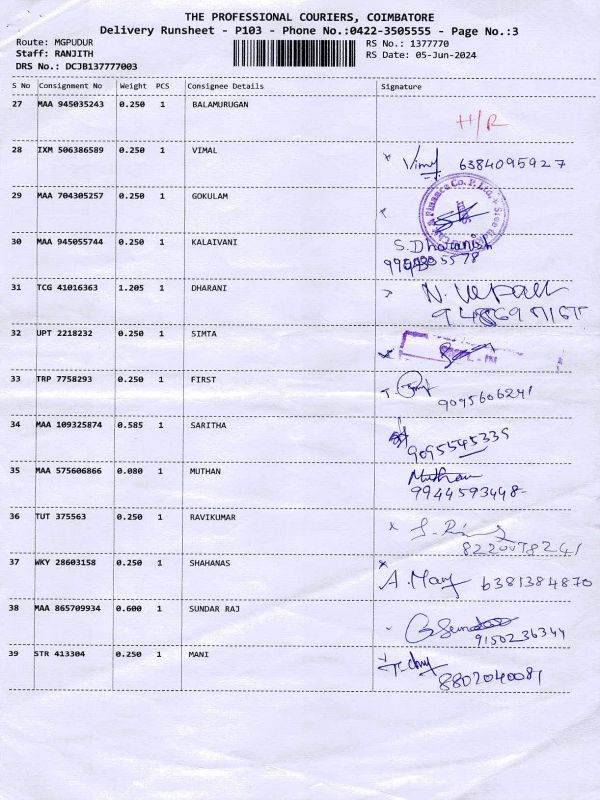 THE PROFESSIONAL COURIERS, COIMBATORE
Delivery Runsheet - P103 - Phone No.:0422-3505555 - Page No.:3
Route: MGPUDUR
Staff: RANJITH
DRS No.: DCJB137777003
RS No.: 1377770
RS Date: 05-Jun-2024
S No Consignment No Weight PCS Consignee Details Signature
27 MAA 945035243 0.250 1 BALAMURUGAN
H/R
28 IXM 506386589 0.250 1 VIMAL
6384095927
29 MAA 704305257 0.250 1 GOKULAM
& Finance Co. P. Ltd.
30 MAA 945055744 0.250 1 KALAIVANI
S. Dharanish
31 TCG 41016363 1.205 1 DHARANI
32 UPT 2218232 0.250 1 SIMTA
33 TRP 7758293 0.250 1 FIRST
9095606241
34 MAA 109325874 0.585 1 SARITHA
9095545335
35 MAA 575606866 0.080 1 MUTHAN
Muthan
9944593448
36 TUT 375563 0.250 1 RAVIKUMAR
37 WKY 28603158 0.250 1 SHAHANAS
6381384870
38 MAA 865709934 0.600 1 SUNDAR RAJ
9150236344
39 STR 413304 0.250 1 MANI
8802040081